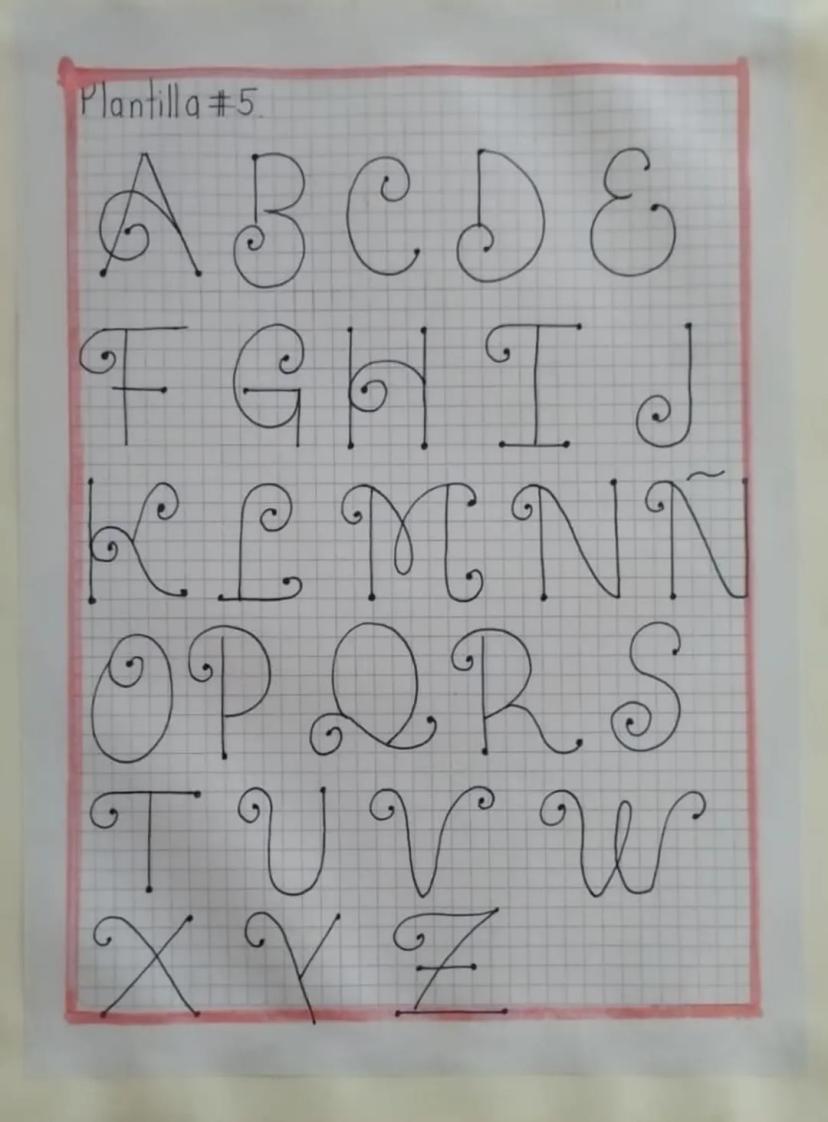 Plantilla #5.
A B C D E
F G H I J
K L M N Ñ
O P Q R S
T U V W
X Y Z